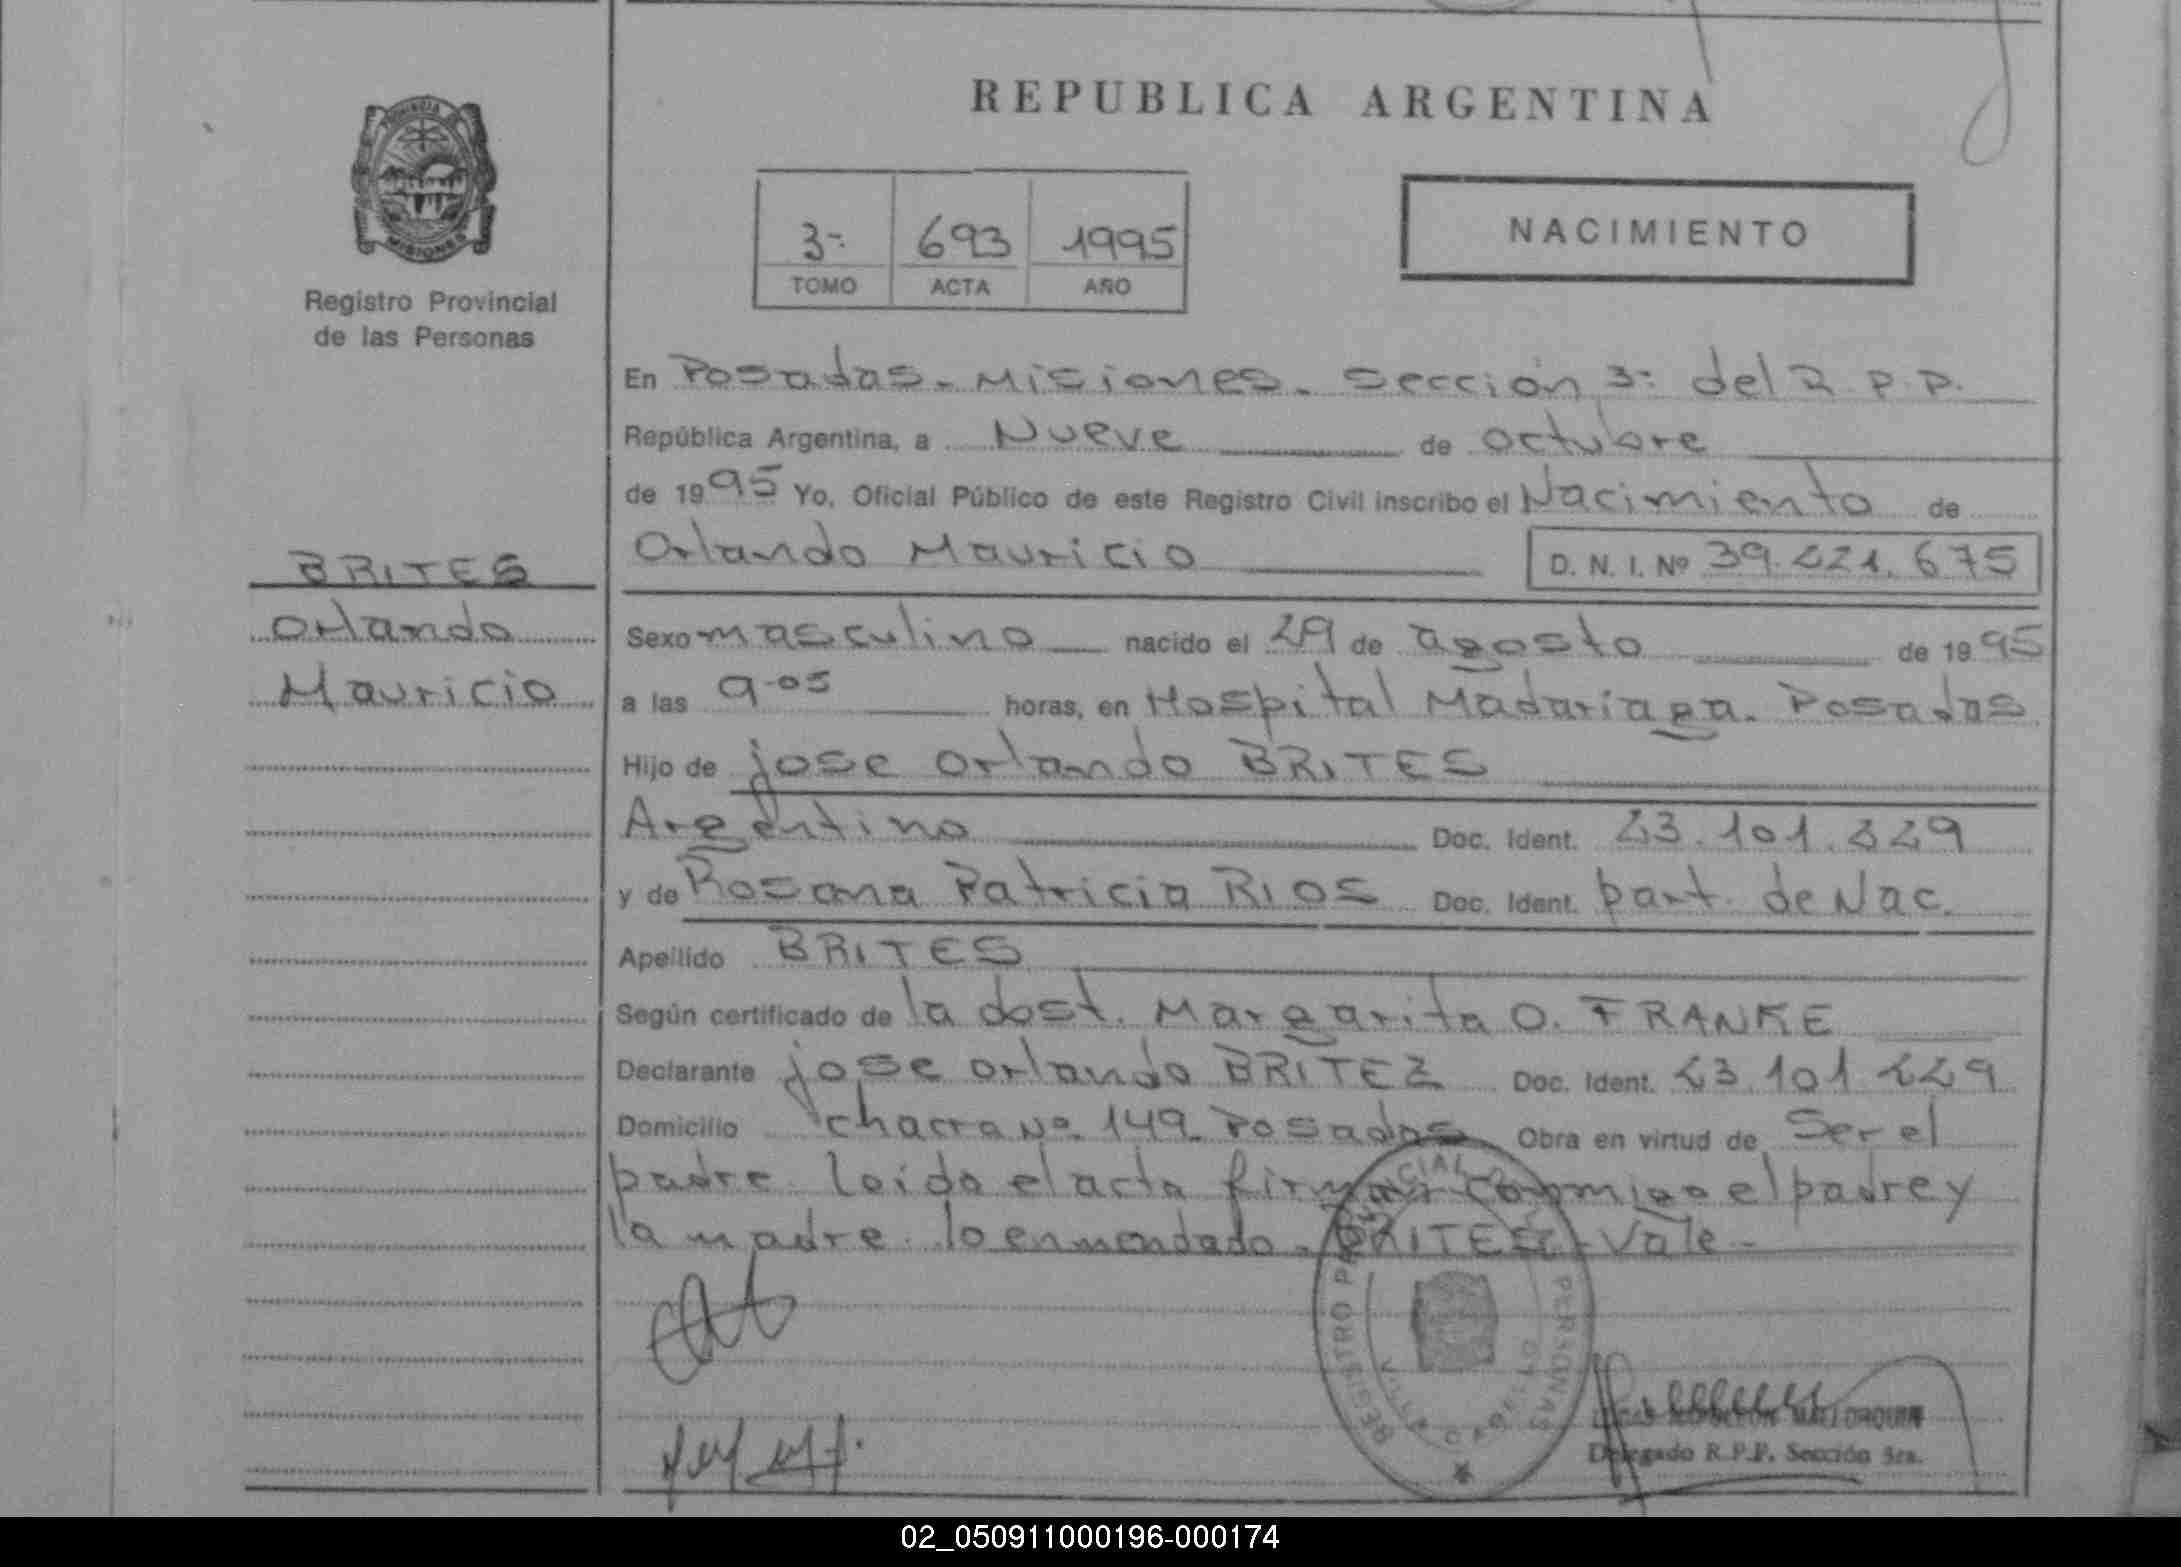 REPUBLICA ARGENTINA
PROVINCIA DE
MISIONES
Registro Provincial
de las Personas
3- 693 1995
TOMO ACTA AÑO
NACIMIENTO
En Posadas - Misiones - Sección 3- del R.P.P.
República Argentina, a Nueve de octubre
de 1995 Yo, Oficial Público de este Registro Civil inscribo el Nacimiento de
Orlando Mauricio D.N.I. Nº 39.221.675
BRITES
Orlando
Mauricio
Sexo masculino nacido el 29 de agosto de 1995
a las 9-05 horas, en Hospital Madariaga. Posadas
Hijo de jose orlando BRITES
Argentino Doc. Ident. 23.101.229
y de Rosana Patricia RIOS Doc. Ident. part. de Nac.
Apellido BRITES
Según certificado de la dost. Margarita O. FRANKE
Declarante jose orlando BRITEZ Doc. Ident. 23.101.229
Domicilio chacra Nº 149. Posadas Obra en virtud de Ser el
padre. leida el acta firman conmigo el padre y
la madre. lo enmendado. BRITES - Vale -
REGISTRO PROVINCIAL PERSONAS
MALLORQUIN
Delegado R.P.P. Sección 3ra.
02_050911000196-000174